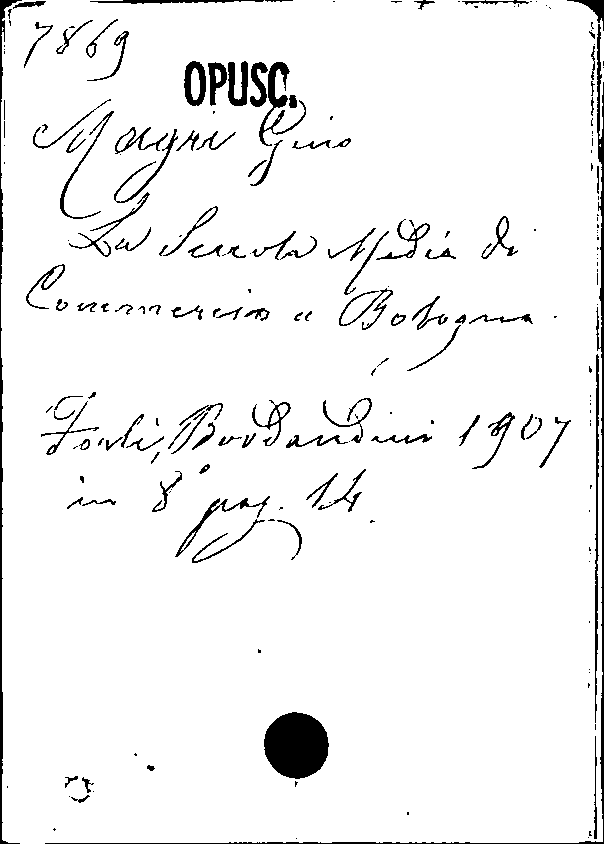 7869
OPUSC.
Magri Gino
La Scuola Media di
Commercio a Bologna.
Forlì, Bordandini 1907
in 8° pag. 14.